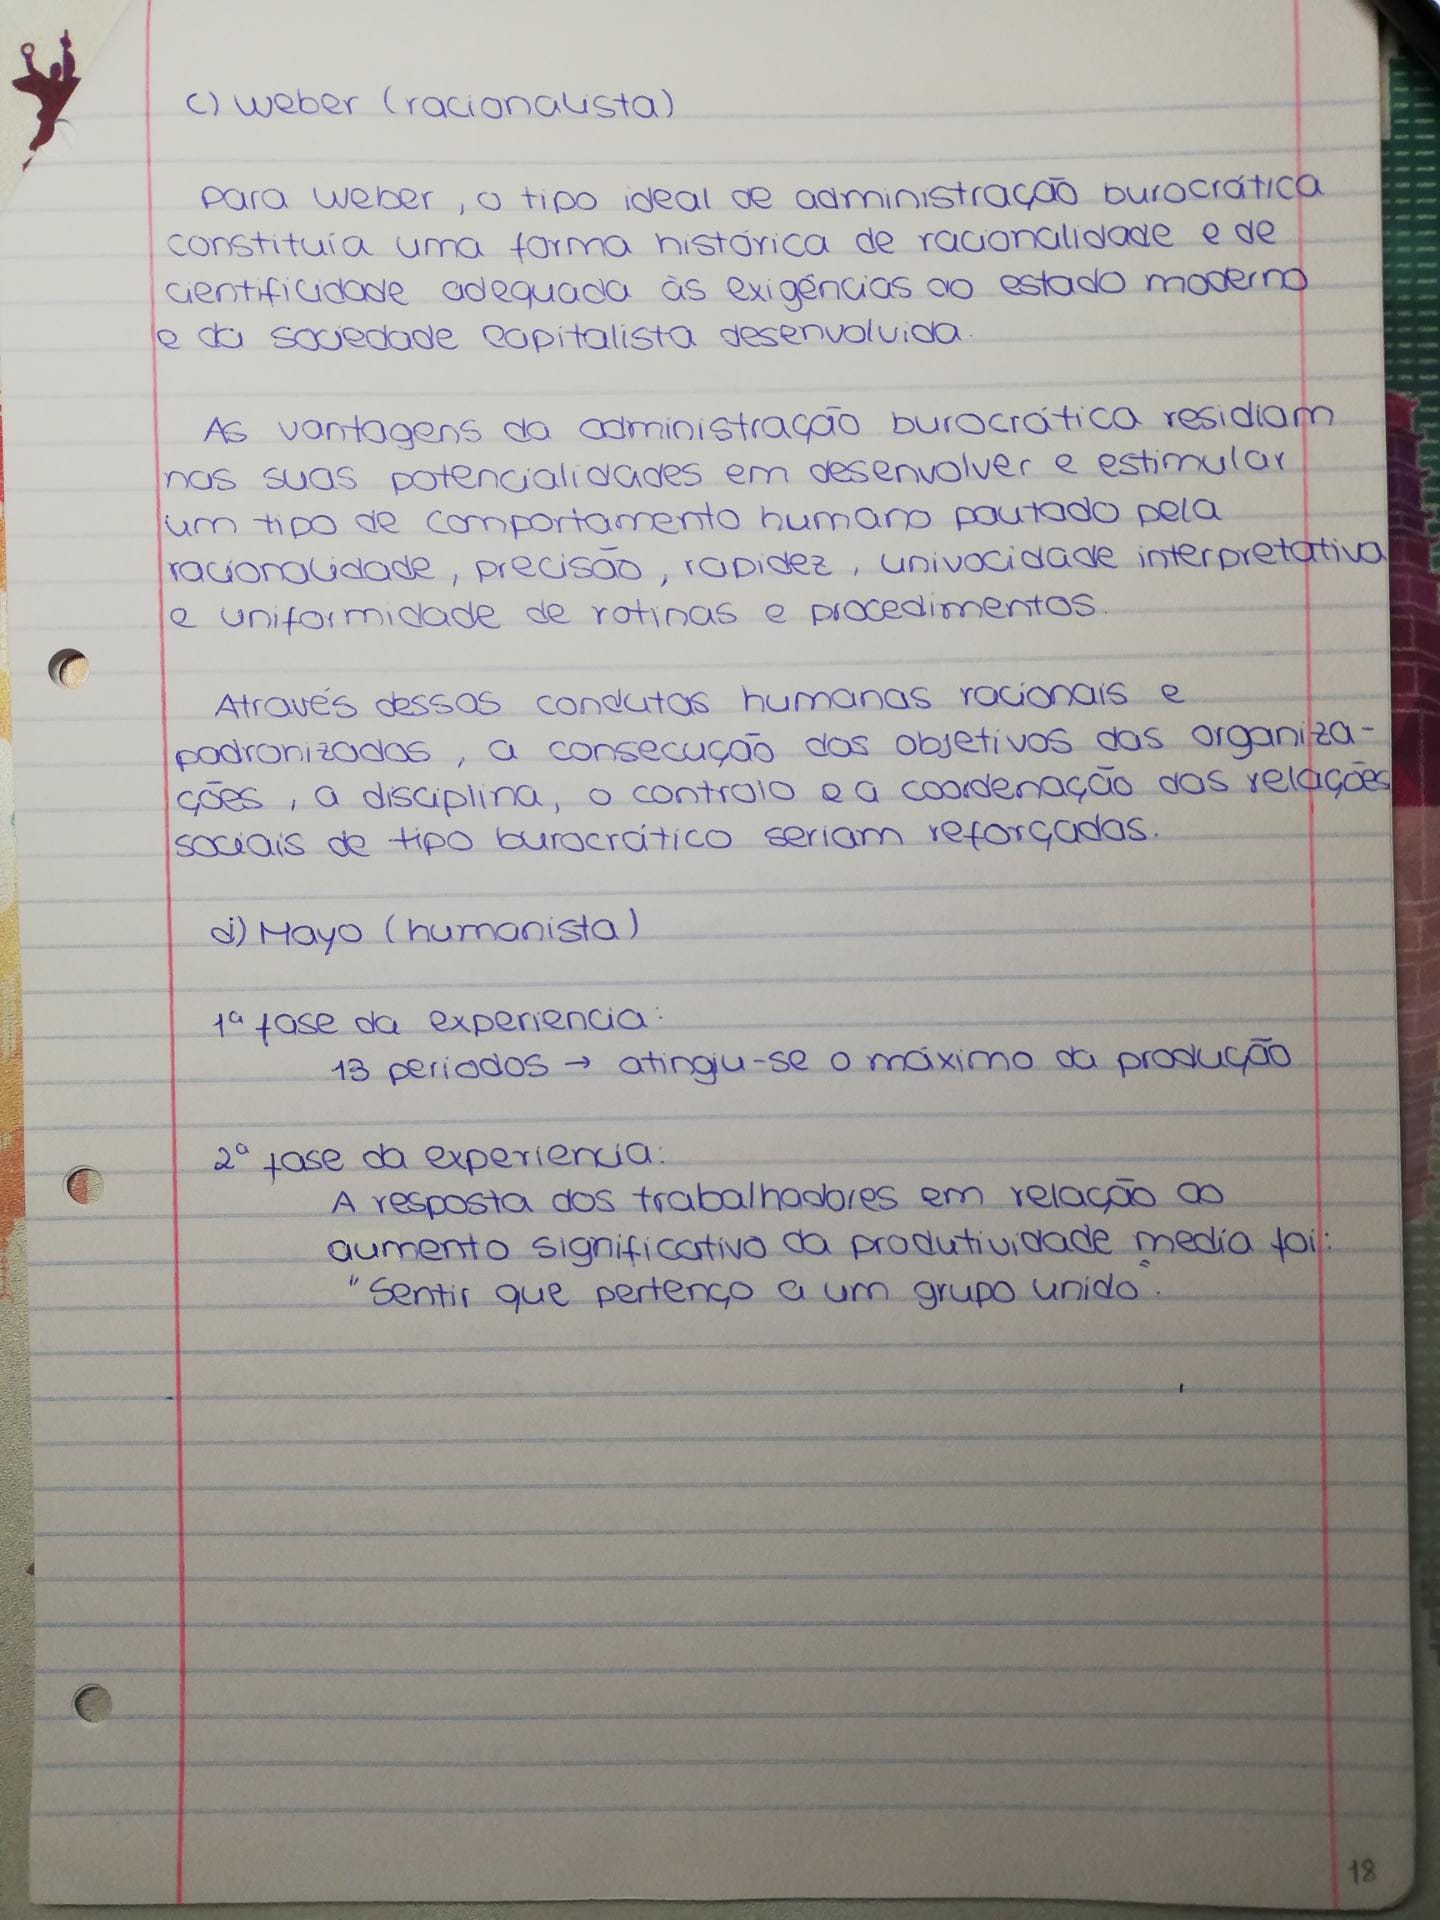 c) Weber (racionalista)
Para Weber, o tipo ideal de administração burocrática
constituía uma forma histórica de racionalidade e de
cientificidade adequada às exigências ao estado moderno
e da sociedade capitalista desenvolvida.
As vantagens da administração burocrática residiam
nas suas potencialidades em desenvolver e estimular
um tipo de comportamento humano pautado pela
racionalidade, precisão, rapidez, univocidade interpretativa
e uniformidade de rotinas e procedimentos.
Através dessas condutas humanas racionais e
padronizadas, a consecução dos objetivos das organiza-
ções, a disciplina, o controlo e a coordenação das relações
sociais de tipo burocrático seriam reforçadas.
d) Mayo (humanista)
1ª fase da experiencia:
13 periodos → atingiu-se o máximo da produção
2ª fase da experiencia:
A resposta dos trabalhadores em relação ao
aumento significativo da produtividade media foi:
"Sentir que pertenço a um grupo unido".
18